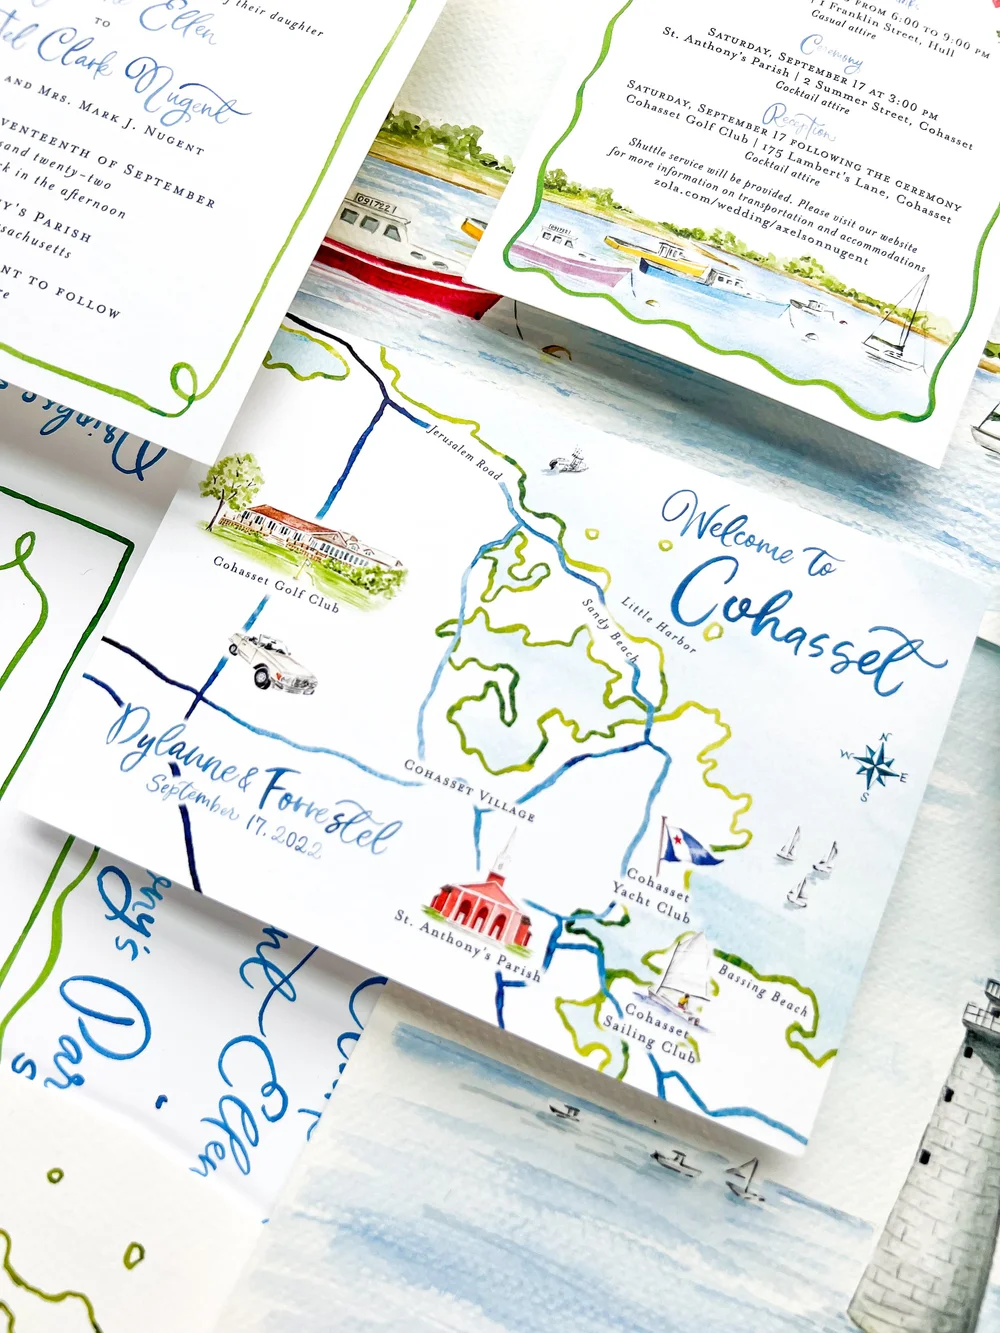 Ellen
TO
Clark Nugent
AND MRS. MARK J. NUGENT
OF SEPTEMBER
and twenty-two
in the afternoon
PARISH
TO FOLLOW
their daughter
FROM 6:00 TO 9:00 PM
| 1 Franklin Street, Hull
Casual attire
Ceremony
SATURDAY, SEPTEMBER 17 AT 3:00 PM
St. Anthony's Parish | 2 Summer Street, Cohasset
Cocktail attire
Reception
SATURDAY, SEPTEMBER 17 FOLLOWING THE CEREMONY
Cohasset Golf Club | 175 Lambert's Lane, Cohasset
Cocktail attire
Shuttle service will be provided. Please visit our website
for more information on transportation and accommodations
zola.com/wedding/axelsonnugent
091722
Welcome To
Cohasset
Jerusalem Road
Cohasset Golf Club
Little Harbor
Sandy Beach
N
W E
S
Dylanne & Forrestel
September 17, 2022
COHASSET VILLAGE
Cohasset
Yacht Club
St. Anthony's Parish
Bassing Beach
Cohasset
Sailing Club
Ellen